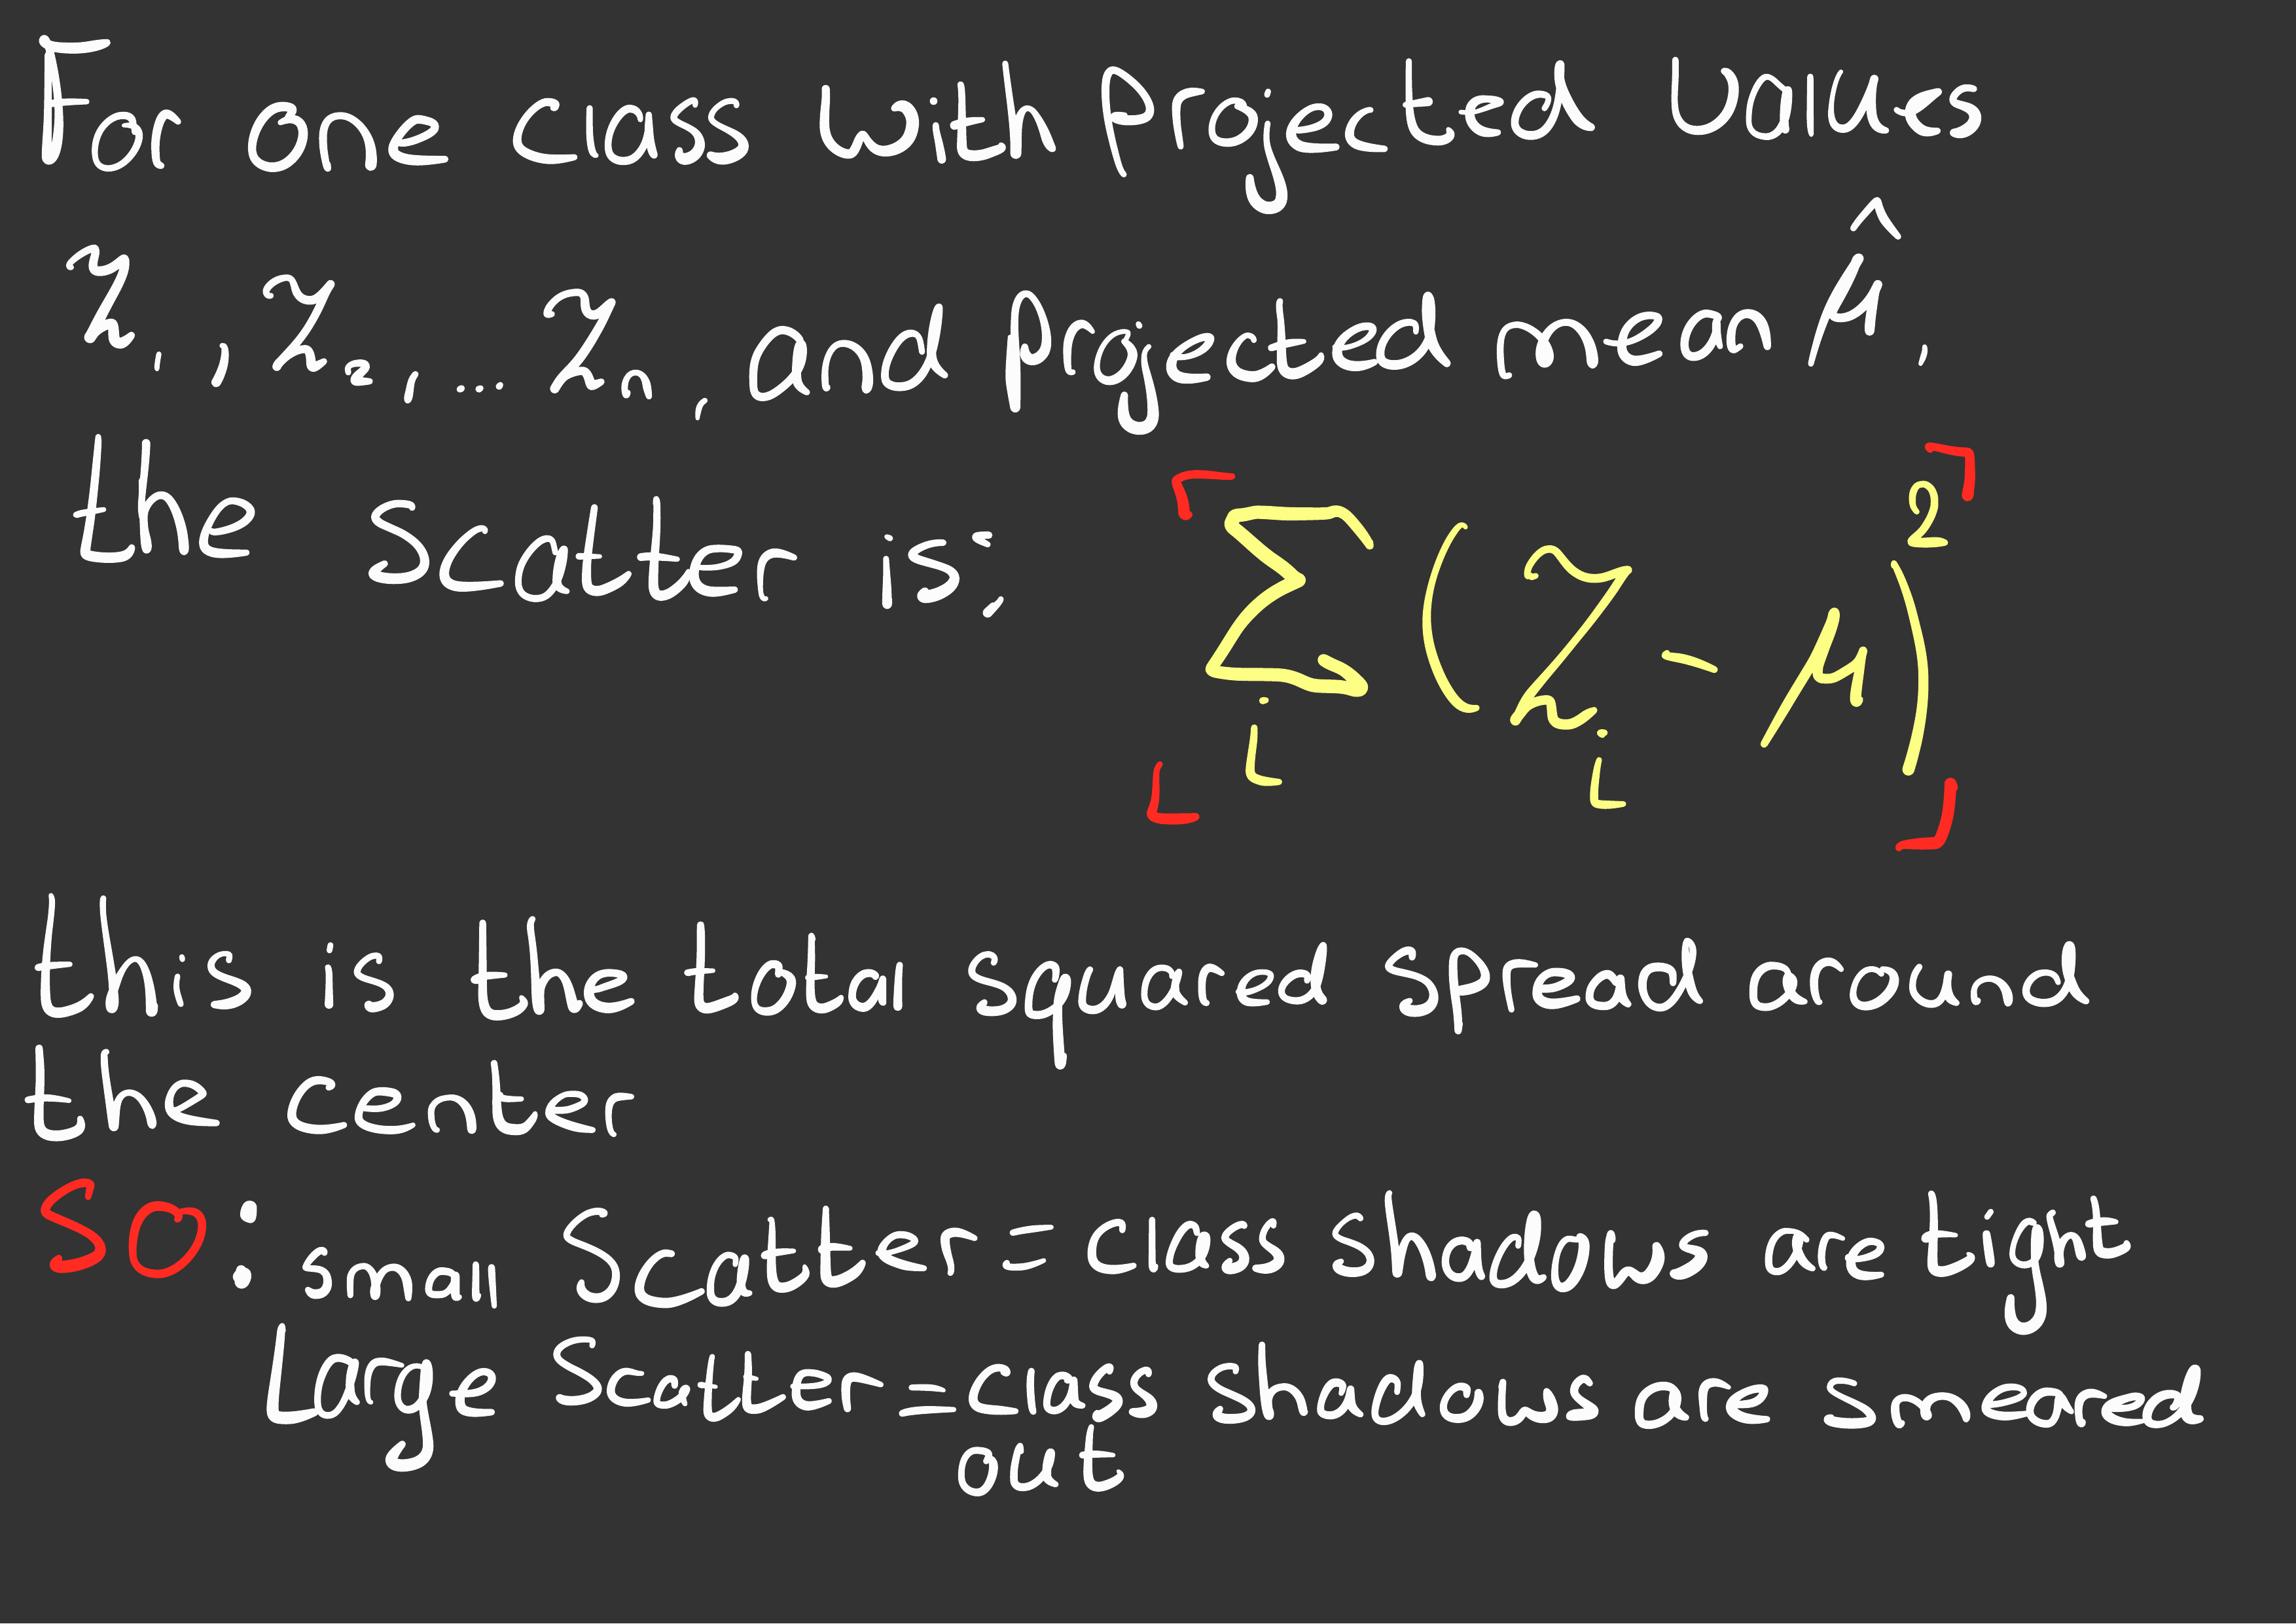 For one class with projected values
z₁, z₂, ... zₙ, and projected mean μ̂,
the scatter is: Σᵢ (zᵢ - μ)²
this is the total squared spread around
the center
SO: small scatter = class shadows are tight
Large Scatter = class shadows are smeared
out